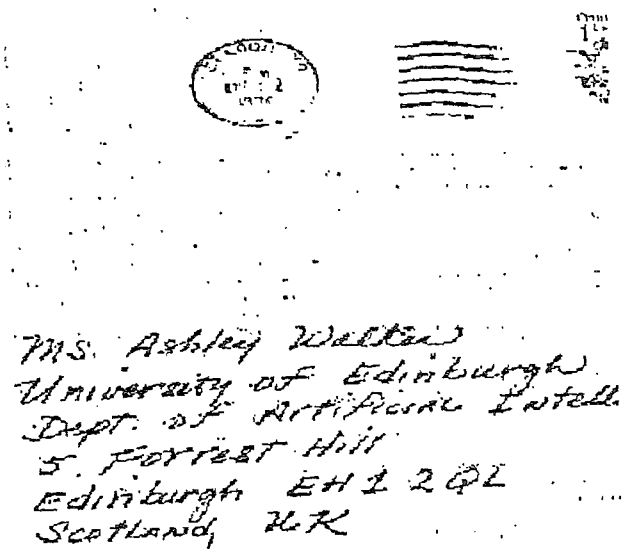 Ms. Ashley Walker
University of Edinburgh
Dept. of Artificial Intell
5. Forrest Hill
Edinburgh EH1 2QL
Scotland, U.K